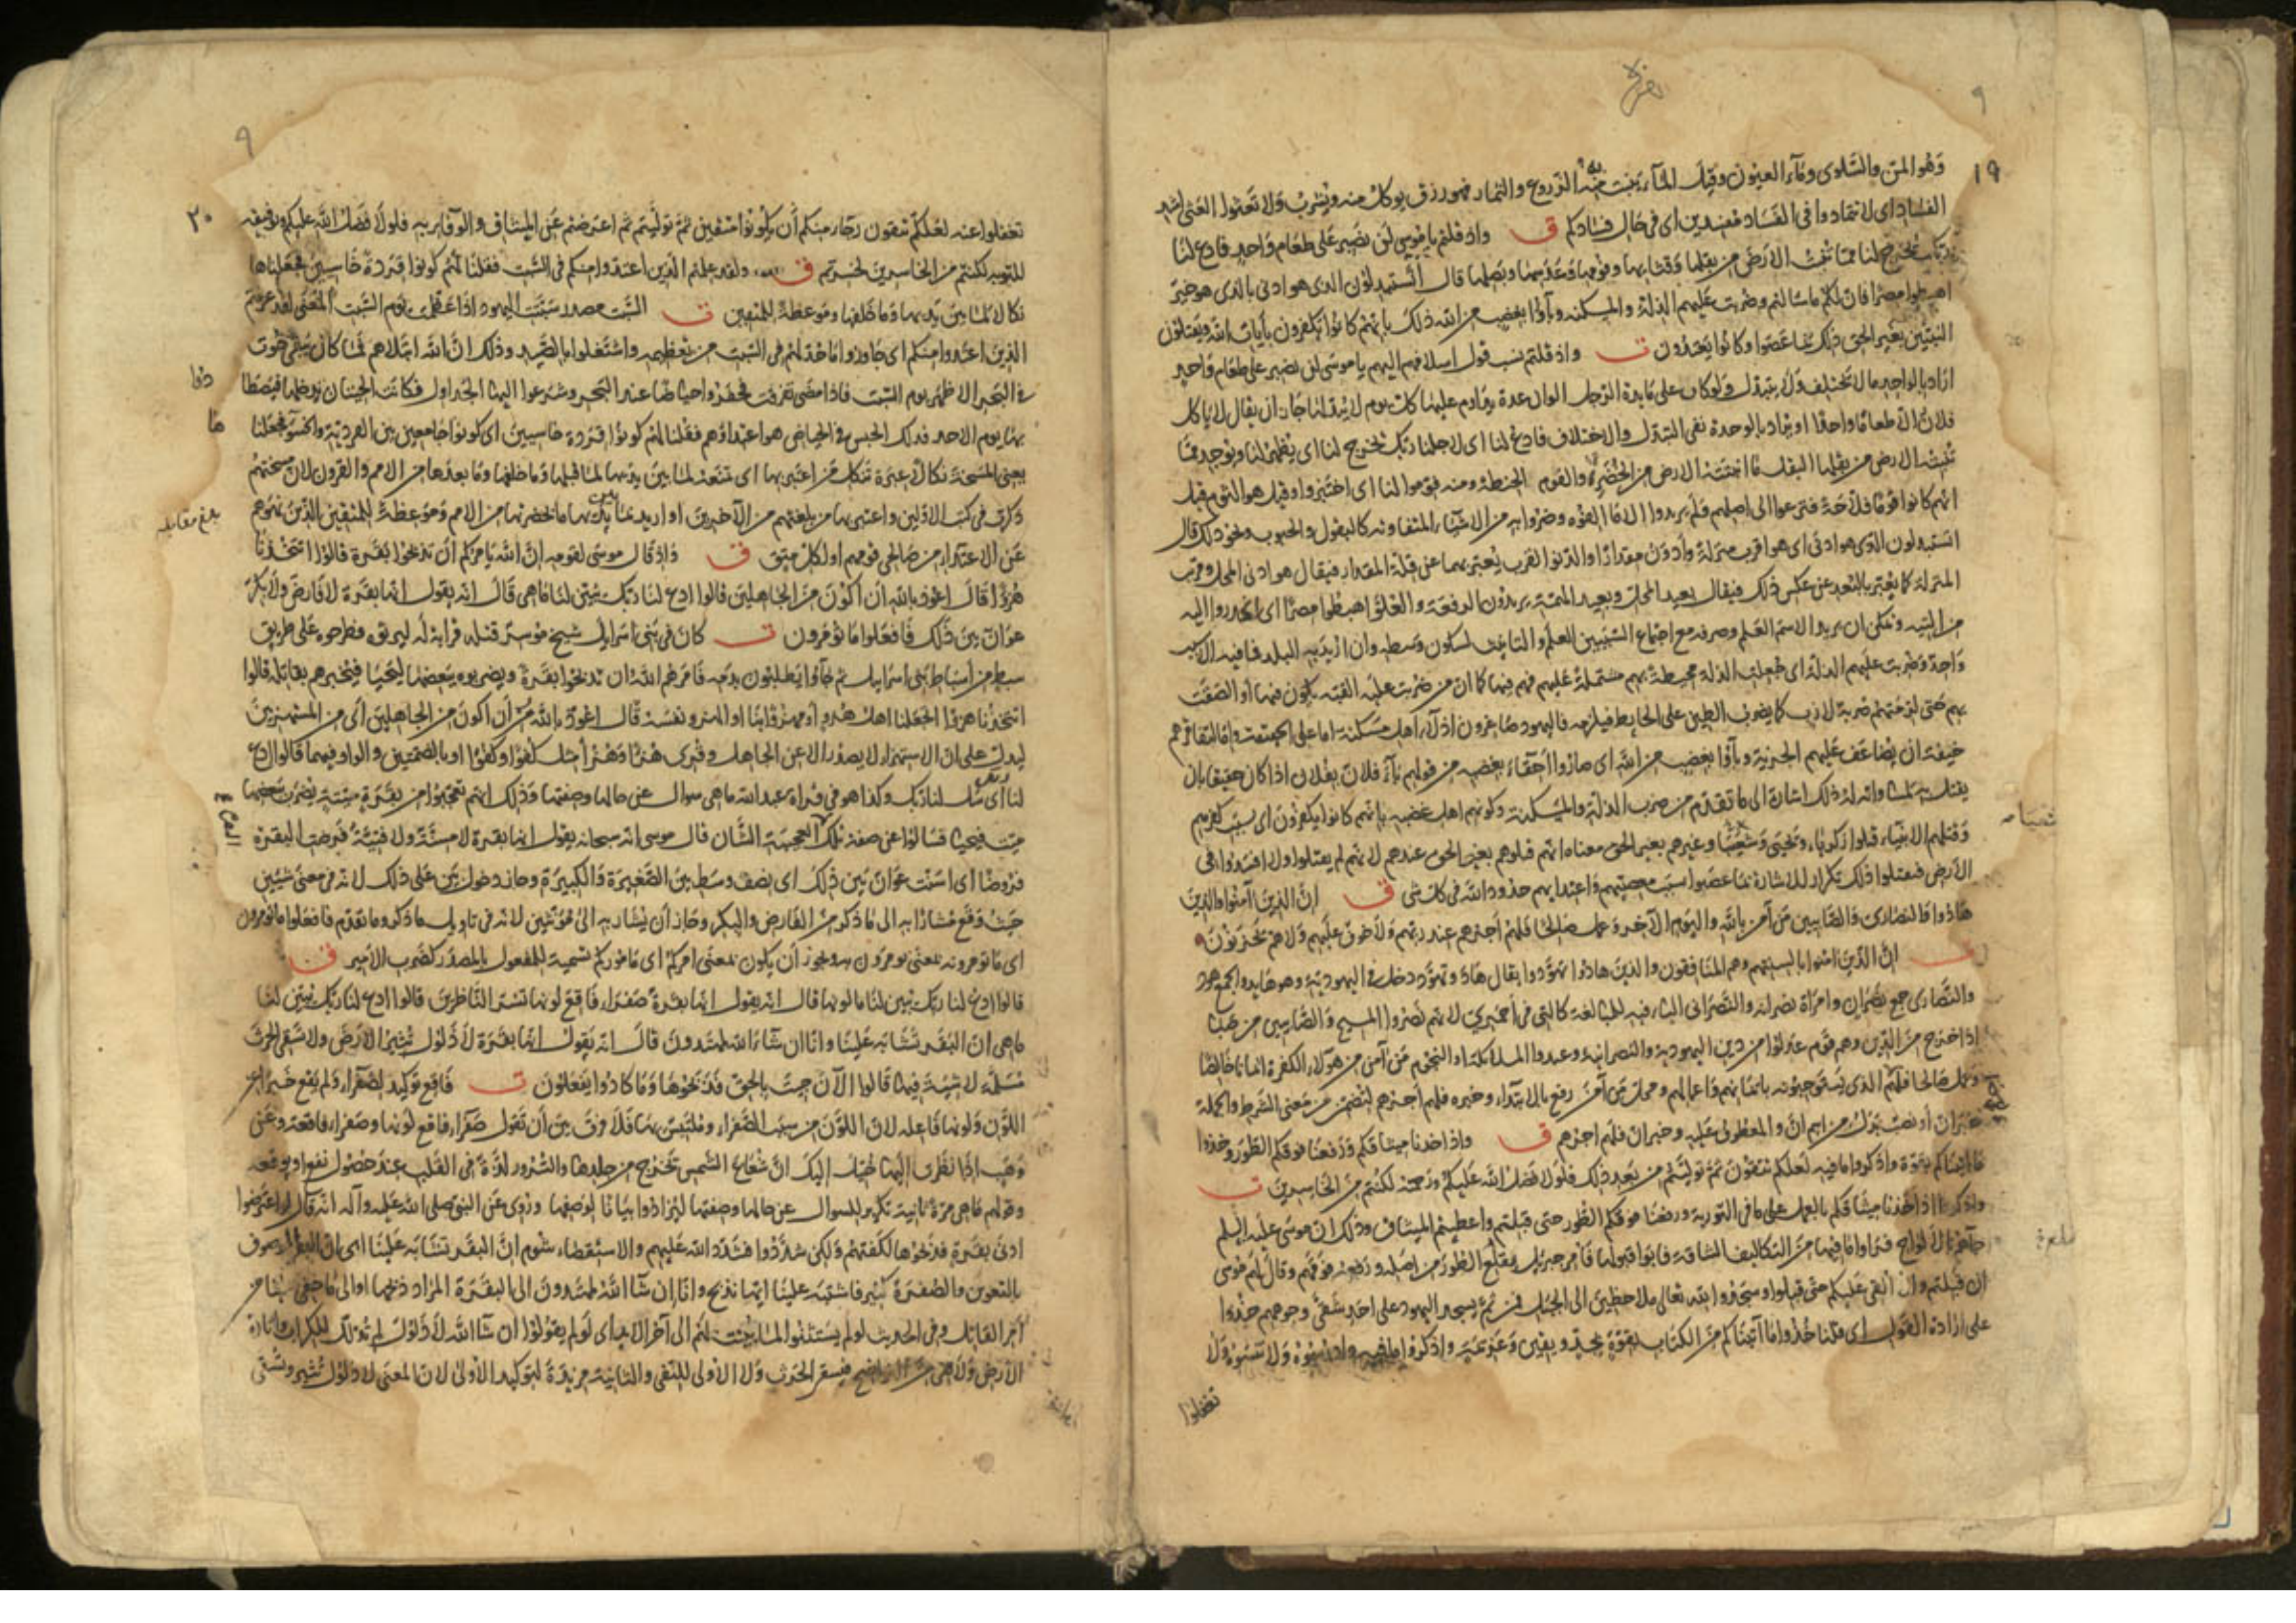 ١٩
وهو المن والسلوى وماء العيون وقيل الماء ينبت منه الزروع والثمار فهو رزق يوكل منه ويشرب ولا تعثوا العثى اشد
الفساد اى لا تتمادوا فى الفساد مفسدين اى فى حال فسادكم ق واذ قلتم يا موسى لن نصبر على طعام واحد فادع لنا
ربك يخرج لنا مما تنبت الارض من بقلها وقثائها وفومها وعدسها وبصلها قال اتستبدلون الذى هو ادنى بالذى هو خير
اهبطوا مصرا فان لكم ما سالتم وضربت عليهم الذلة والمسكنة وباؤا بغضب من الله ذلك بانهم كانوا يكفرون بآيات الله ويقتلون
النبيين بغير الحق ذلك بما عصوا وكانوا يعتدون ت واذ قلتم نسب قول اسلافهم اليهم يا موسى لن نصبر على طعام واحد
اراد بالواحد ما لا يختلف ولا يتبدل ولو كان على مايدة الرجل الوان عدة يداوم عليها كل يوم لا يبدلها جاز ان يقال لا ياكل
فلان الا طعاما واحدا او يراد بالوحدة نفى التبدل والاختلاف فادع لنا اى لاجلنا ربك يخرج لنا اى يظهر لنا ويوجد مما
تنبت الارض من بقلها البقل ما انبتته الارض من الخضرة والفوم الحنطة ومنه فوموا لنا اى اختبزوا وقيل هو الثوم وقيل
انهم كانوا قوما فلاحة فنزعوا الى اصلهم فلم يريدوا الا ما الفوه وضروا به من الاشياء المتفاوته كالبقول والحبوب ونحو ذلك قال
اتستبدلون الذى هو ادنى اى هو اقرب منزلة وادون مقدارا والدنو القرب يعبر بهما عن قلة المقدار فيقال هو ادنى المحل وقرب
المنزلة كما يعبر بالبعد عن عكس ذلك فيقال بعيد المحل وبعيد الهمة يريدون الرفعة والعلو اهبطوا مصرا اى انحدروا اليه
من التيه ويمكن ان يريد الاسم العلم وصرفه مع اجتماع السببين العلم والتانيث لسكون وسطه وان اريد به البلد فما فيه الا سبب
واحد وضربت عليهم الذلة اى جعلت الذلة محيطة بهم مشتملة عليهم فهم فيها كما ان من ضربت عليه القبة يكون فيها او الصقت
بهم حتى لزمتهم ضربة لازب كما يضرب الطين على الحايط فيلزمه فاليهود صاغرون اذلاء اهل مسكنة اما على الحقيقة واما لتفاقرهم
خيفة ان يضاعف عليهم الجزية وباؤا بغضب من الله اى صاروا احقاء بغضبه من قولهم باء فلان بفلان اذا كان حقيقا بان
يقتل به لمساواته له ذلك اشارة الى ما تقدم من ضرب الذلة والمسكنة وكونهم اهل غضبه بانهم كانوا يكفرون اى بسبب كفرهم
وقتلهم الانبياء قتلوا زكريا ويحيى وشعيبا وغيرهم بغير الحق معناه انهم قتلوهم بغير الحق عندهم لانهم لم يقتلوا ولا افسدوا فى
الارض فيقتلوا ذلك تكرار للاشارة بما عصوا بسبب معصيتهم واعتدايهم حدود الله فى كل شى ق ان الذين آمنوا والذين
هادوا والنصارى والصابيين من آمن بالله واليوم الآخر وعمل صالحا فلهم اجرهم عند ربهم ولا خوف عليهم ولا هم يحزنون
ت ان الذين امنوا بالسنتهم وهم المنافقون والذين هادوا تهودوا يقال هاد وتهود دخل فى اليهودية وهو هايد والجمع هود
والنصارى جمع نصران وامراة نصرانة والنصرانى الياء فيه للمبالغة كالتى فى احمرى لانهم نصروا المسيح والصابيين من صبا
اذا خرج من الدين وهم قوم عدلوا من دين اليهودية والنصرانية وعبدوا الملائكة او النجوم من آمن من هولاء الكفرة ايمانا خالصا
وعمل صالحا فلهم الذى يستوجبونه بايمانهم واعمالهم ومحل من آمن رفع بالابتداء وخبره فلهم اجرهم لتضمن من معنى الشرط والجملة
خبر ان او نصب بدل من اسم ان والمعطوف عليه وخبر ان فلهم اجرهم ق واذ اخذنا ميثاقكم ورفعنا فوقكم الطور خذوا
ما آتيناكم بقوة واذكروا ما فيه لعلكم تتقون ثم توليتم من بعد ذلك فلولا فضل الله عليكم ورحمته لكنتم من الخاسرين ت
واذكروا اذ اخذنا ميثاقكم بالعمل على ما فى التورية ورفعنا فوقكم الطور حتى قبلتم واعطيتم الميثاق وذلك ان موسى عليه السلم
جآهم بالالواح فراوا ما فيها من التكاليف الشاقة فابوا قبولها فامر جبريل بقلع الطور من اصله ورفعه فوقهم وقال لهم موسى
ان قبلتم والا القى عليكم حتى قبلوا وسجدوا لله تعالى ملاحظين الى الجبل فمن ثم يسجد اليهود على احد شقى وجوههم خذوا
على ارادة القول اى قلنا خذوا ما آتيناكم من الكتاب بقوة بجد ويقين وعزيمة واذكروا ما فيه وادرسوه ولا تنسوه ولا
تغفلوا
٢٠
تغفلوا عنه لعلكم تتقون رجاء منكم ان يكونوا متقين ثم توليتم ثم اعرضتم عن الميثاق والوفاء به فلولا فضل الله عليكم بتوفيقه
للتوبه لكنتم من الخاسرين لخسرتم ق ولقد علمتم الذين اعتدوا منكم فى السبت فقلنا لهم كونوا قردة خاسيين فجعلناها
نكالا لما بين يديها وما خلفها وموعظة للمتقين ت السبت مصدر سبتت اليهود اذا عظمت يوم السبت المعنى لقد عرفتم
الذين اعتدوا منكم اى جاوزوا ما حد لهم فى السبت من تعظيمه واشتغلوا بالصيد وذلك ان الله ابتلاهم فما كان يبقى حوت
فى البحر الا ظهر يوم السبت فاذا مضى تفرقت فحفروا حياضا عند البحر وشرعوا اليها الجداول فكانت الحيتان تدخلها فيصطا
دونها يوم الاحد فذلك الحبس فى الحياض هو اعتداؤهم فقلنا لهم كونوا قردة خاسيين اى كونوا جامعين بين القردية والخسؤ فجعلنا
يعنى المسخة نكالا عبرة تنكل من اعتبر بها اى تمنعه لما بين يديها لما قبلها وما خلفها وما بعدها من الامم والقرون لان مسختهم
ذكرت فى كتب الاولين واعتبر بها من بلغتهم من الآخرين او اريد بما بين يديها ما بحضرتها من الامم وموعظة للمتقين الذين نهوهم
بلغ مقابله
عن الاعتداء من صالحى قومهم او لكل متق ق واذ قال موسى لقومه ان الله يامركم ان تذبحوا بقرة قالوا اتتخذنا
هزوا قال اعوذ بالله ان اكون من الجاهلين قالوا ادع لنا ربك يبين لنا ما هى قال انه يقول انها بقرة لا فارض ولا بكر
عوان بين ذلك فافعلوا ما تؤمرون ت كان فى بنى اسرايل شيخ موسر قتله قرابة له ليرثوه وطرحوه على طريق
سبط من اسباط بنى اسرايل ثم جاؤا يطلبون بدمه فامرهم الله ان يذبحوا بقرة ويضربوه ببعضها ليحيا فيخبرهم بقاتله قالوا
اتتخذنا هزوا اتجعلنا اهل هزو او مهزؤا بنا او الهزو نفسه قال اعوذ بالله من ان اكون من الجاهلين اى من المستهزين
ليدل على ان الاستهزاء لا يصدر الا عن الجاهل وقرى هزءا وهزؤا مثل كفؤا وكفوا او بالضمتين والواو فيهما قالوا ادع
لنا اى سل لنا ربك وكذا هو فى قراة عبدالله ما هى سوال عن حالها وصفتها وذلك انهم تعجبوا من بقرة ميتة يضرب ببعضها
ميت فيحيا فسالوا عن صفة تلك العجيبة الشان قال موسى انه سبحانه يقول انها بقرة لا مسنة ولا فتية فرضت البقرة
فروضا اى اسنت عوان بين ذلك اى نصف وسط بين الصغيرة والكبيرة وجاز دخول بين على ذلك لانه فى معنى شيئين
حيث وقع مشارا به الى ما ذكر من الفارض والبكر وجاز ان يشار به الى مؤنثين لانه فى تاويل ما ذكر وما تقدم فافعلوا ما تومرون
اى ما تومرونه بمعنى تومرون به ويجوز ان يكون بمعنى امركم اى ماموركم تسمية للمفعول بالمصدر كضرب الامير ق
قالوا ادع لنا ربك يبين لنا ما لونها قال انه يقول انها بقرة صفراء فاقع لونها تسر الناظرين قالوا ادع لنا ربك يبين لنا
ما هى ان البقر تشابه علينا وانا ان شاء الله لمهتدون قال انه يقول انها بقرة لا ذلول تثير الارض ولا تسقى الحرث
مسلمة لا شية فيها قالوا الآن جيت بالحق فذبحوها وما كادوا يفعلون ت فاقع توكيد لصفراء ولم يقع خبرا عن
اللون ولونها فاعله لان اللون من سبب الصفراء وملتبس بها فلا فرق بين ان تقول صفراء فاقع لونها وصفراء فاقعة وعن
وهب اذا نظرت اليها خيل اليك ان شعاع الشمس تخرج من جلدها والسرور لذة فى القلب عند حصول نفع او توقعه
وقولهم ما هى مرة ثانية تكرير للسوال عن حالها وصفتها ليزدادوا بيانا لوصفها وروى عن النبى صلى الله عليه وآله انه قال لو اعترضوا
ادنى بقرة فذبحوها لكفتهم ولكن شددوا فشدد الله عليهم والاستقصاء شوم ان البقر تشابه علينا اى ان البقر الموصوف
بالتعوين والصفرة كثير فاشتبه علينا ايها نذبح وانا ان شا الله لمهتدون الى البقرة المراد ذبحها او الى ما خفى علينا من
امر القاتل وفى الحديث لو لم يستثنوا لما بينت لهم الى آخر الابد اى لو لم يقولوا ان شا الله لا ذلول لم تذلل للكراب واثارة
الارض ولا هى من النواضح فيسقى الحرث ولا الاولى للنفى والثانية مزيدة لتوكيد الاولى لان المعنى لا ذلول تثير وتسقى